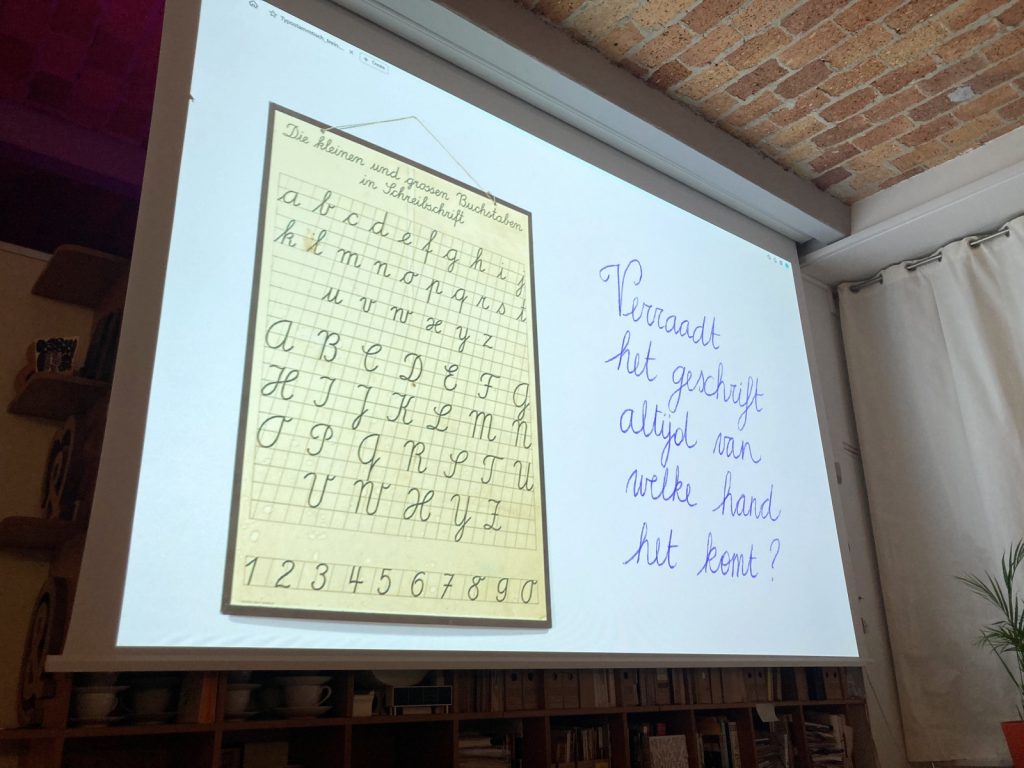 Create
Die kleinen und grossen Buchstaben
in Schreibschrift
a b c d e f g h i j
k l m n o p q r s t
u v w x y z
A B C D E F G
H I J K L M N
O P Q R S T U
V W X Y Z
1 2 3 4 5 6 7 8 9 0
Verraadt
het geschrift
altijd van
welke hand
het komt?